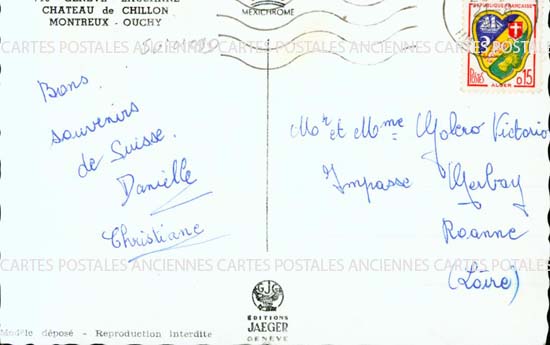 GENÈVE LAUSANNE
CHATEAU de CHILLON
MONTREUX - OUCHY
MEXICHROME
REPUBLIQUE FRANÇAISE
POSTES
0,15
ALGER
CARTES POSTALES ANCIENNES CARTES POSTALES ANCIENNES CARTES POSTALES ANCIENNES
Bons
souvenirs
de Suisse.
Danielle
Christiane
Mr et Mme Molero Victorio
Impasse Merbay
Roanne
(Loire)
CARTES POSTALES ANCIENNES CARTES POSTALES ANCIENNES CARTES POSTALES ANCIENNES
EDITIONS
JAEGER
GENÈVE
Modèle déposé - Reproduction interdite